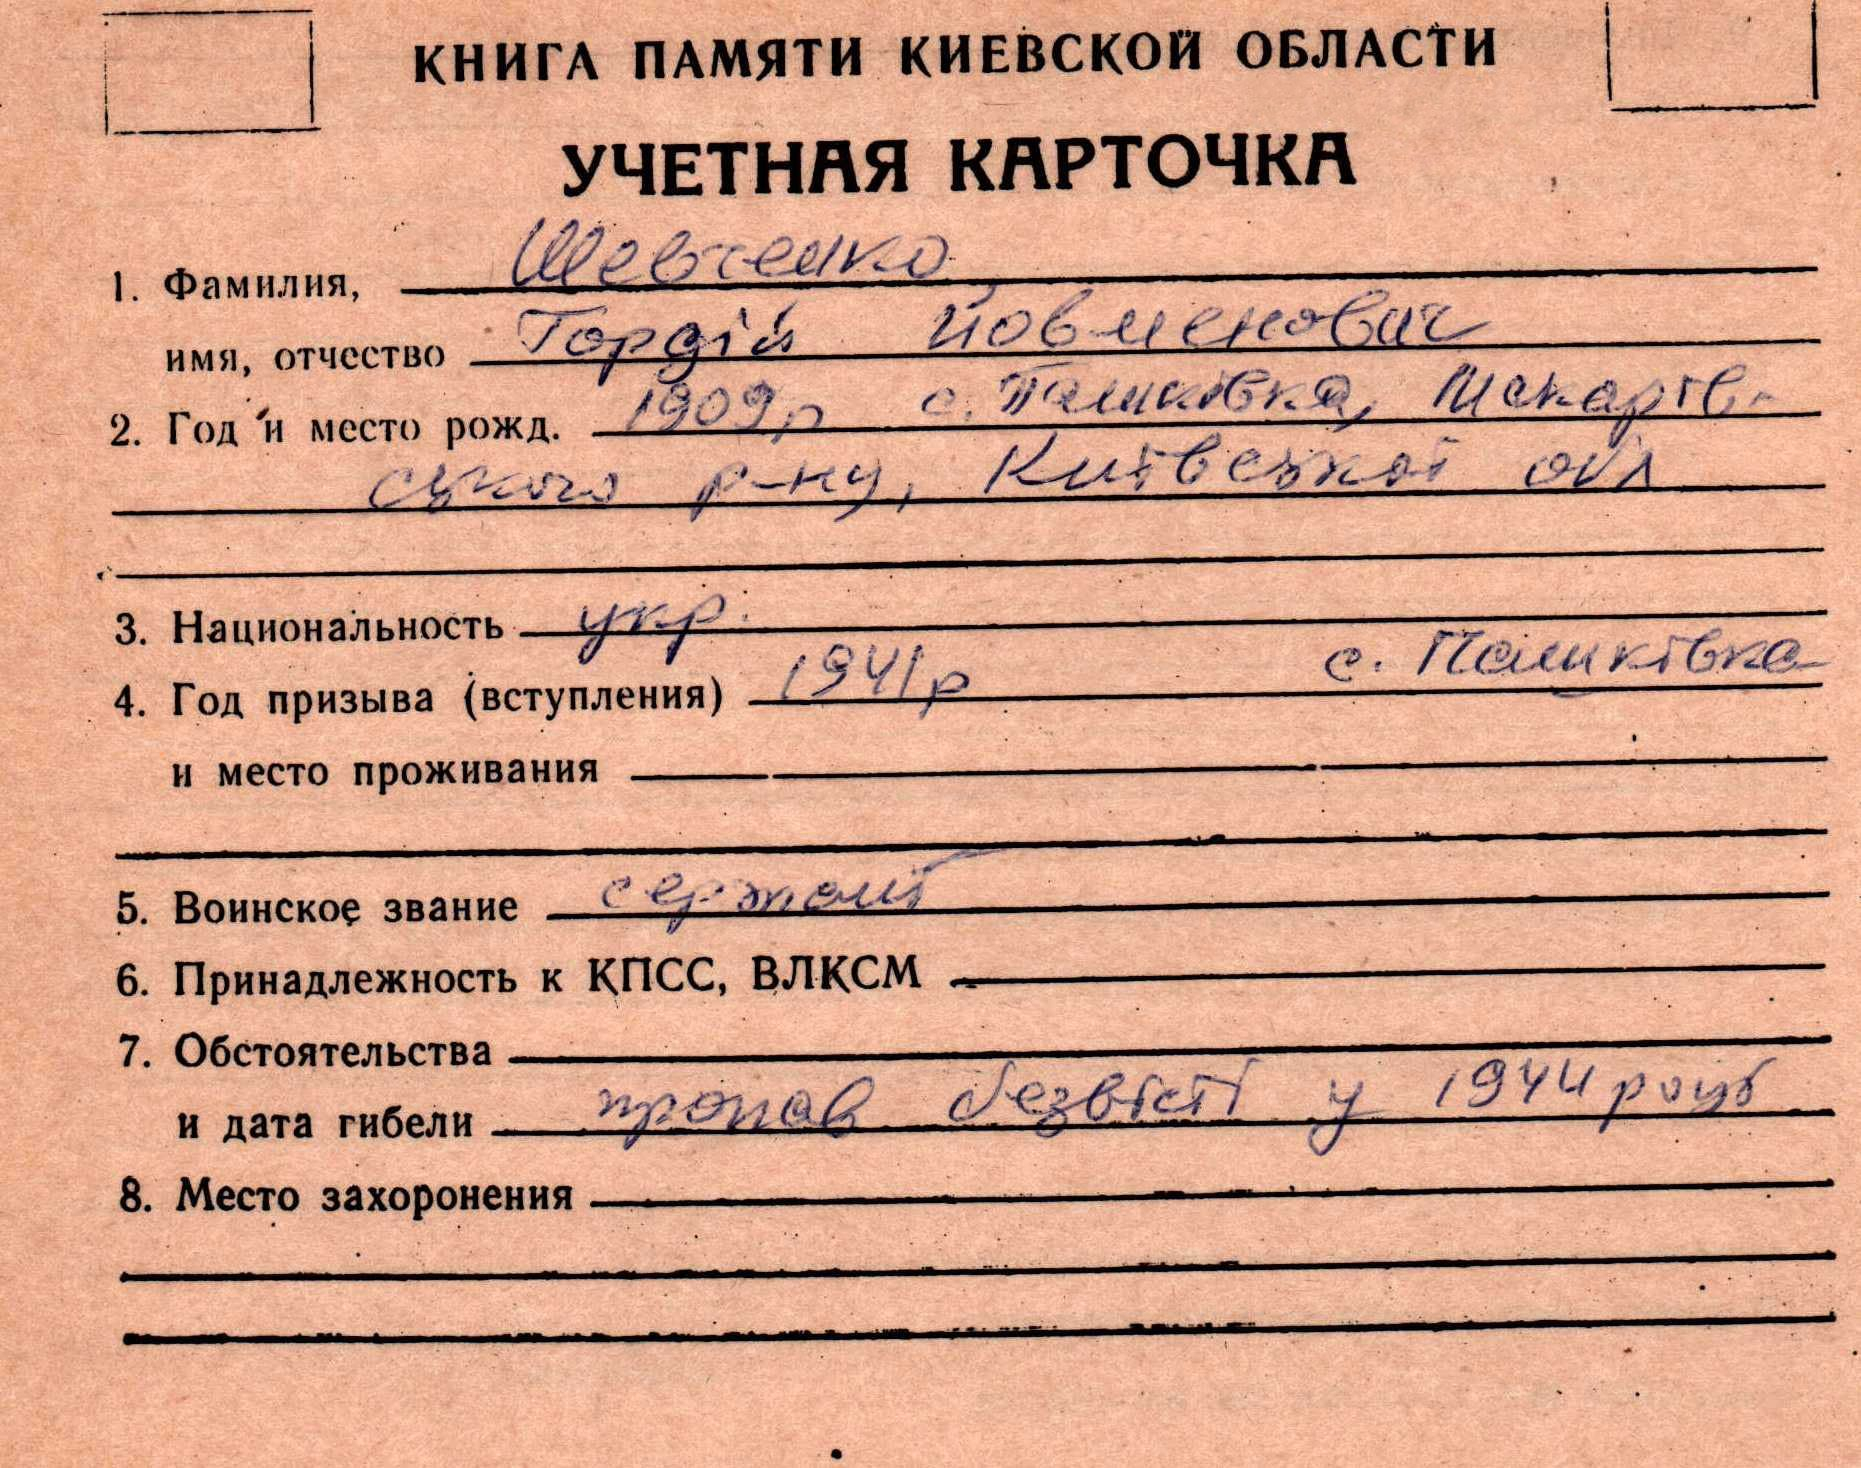 КНИГА ПАМЯТИ КИЕВСКОЙ ОБЛАСТИ
УЧЕТНАЯ КАРТОЧКА
1. Фамилия, Шевченко
имя, отчество Гордій Йовменович
2. Год и место рожд. 1909р с. Пашківка, Макарів-
ського р-ну, Київської обл
3. Национальность укр.
4. Год призыва (вступления) 1941р с. Пашківка
и место проживания
5. Воинское звание сержант
6. Принадлежность к КПСС, ВЛКСМ
7. Обстоятельства
и дата гибели пропав безвісті у 1944 році
8. Место захоронения